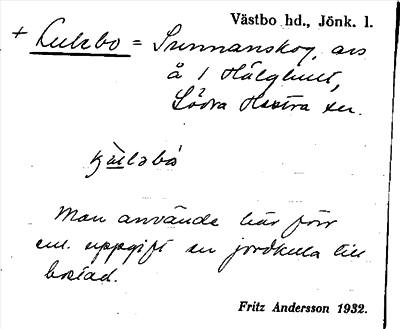 Västbo hd., Jönk. l.
+ Kulabo = Sunnanskog, avs
å 1 Hälghult,
Södra Hestra sn.
Man använde här förr
enl. uppgift en jordkula till
bostad.
Fritz Andersson 1932.